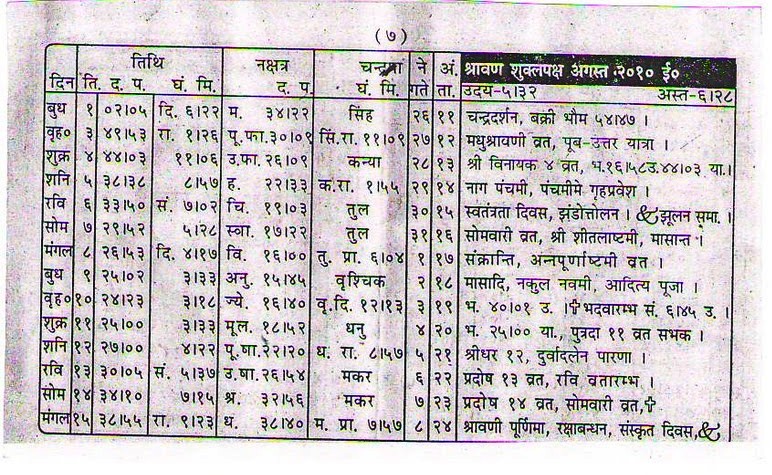 (७)
तिथि नक्षत्र चन्द्रमा ने अं. श्रावण शुक्लपक्ष अगस्त २०१० ई०
दिन ति. द. प. घं. मि. द. प. घं. मि. गते ता. उदय-५।३२ अस्त-६।२८
बुध १ ०२।०५ दि. ६।२२ म. ३४।२२ सिंह २६ ११ चन्द्रदर्शन, बक्री भौम ५४।४७ ।
वृह० ३ ४९।५३ रा. १।२६ पू.फा.३०।०९ सिं.रा. ११।०९ २७ १२ मधुश्रावणी व्रत, पूब-उत्तर यात्रा ।
शुक्र ४ ४४।०३ ११।०६ उ.फा. २६।०९ कन्या २८ १३ श्री विनायक ४ व्रत, भ.१६।५८उ.४४।०३ या.।
शनि ५ ३८।३८ ८।५७ ह. २२।३३ क.रा. १।५५ २९ १४ नाग पंचमी, पंचमीमे गृहप्रवेश ।
रवि ६ ३३।५० सं. ७।०२ चि. १९।०३ तुल ३० १५ स्वतंत्रता दिवस, झंडोत्तोलन । & झूलन समा. ।
सोम ७ २९।५२ ५।२८ स्वा. १७।२२ तुल ३१ १६ सोमवारी व्रत, श्री शीतलाष्टमी, मासान्त ।
मंगल ८ २६।५३ दि. ४।१७ वि. १६।०० तु. प्रा. ६।०४ १ १७ संक्रान्ति, अन्नपूर्णाष्टमी व्रत ।
बुध ९ २५।०२ ३।३३ अनु. १५।४५ वृश्चिक २ १८ मासादि, नकुल नवमी, आदित्य पूजा ।
वृह० १० २४।२३ ३।१८ ज्ये. १६।४० वृ.दि. १२।१३ ३ १९ भ. ४०।०१ उ. ।✞ भदवारम्भ सं. ६।४५ उ. ।
शुक्र ११ २५।०० ३।३३ मूल. १८।५२ धनु ४ २० भ. २५।०० या., पुत्रदा ११ व्रत सभक ।
शनि १२ २७।०० ४।२२ पू.षा.२२।२० ध. रा. ८।५७ ५ २१ श्रीधर १२, दुर्वादलेन पारणा ।
रवि १३ ३०।०५ सं. ५।३७ उ.षा.२६।५४ मकर ६ २२ प्रदोष १३ व्रत, रवि व्रतारम्भ ।
सोम १४ ३४।१० ७।१५ श्र. ३२।५६ मकर ७ २३ प्रदोष १४ व्रत, सोमवारी व्रत,✞
मंगल १५ ३८।५५ रा. ९।२३ ध. ३८।४० म. प्रा. ७।५७ ८ २४ श्रावणी पूर्णिमा, रक्षाबन्धन, संस्कृत दिवस,&